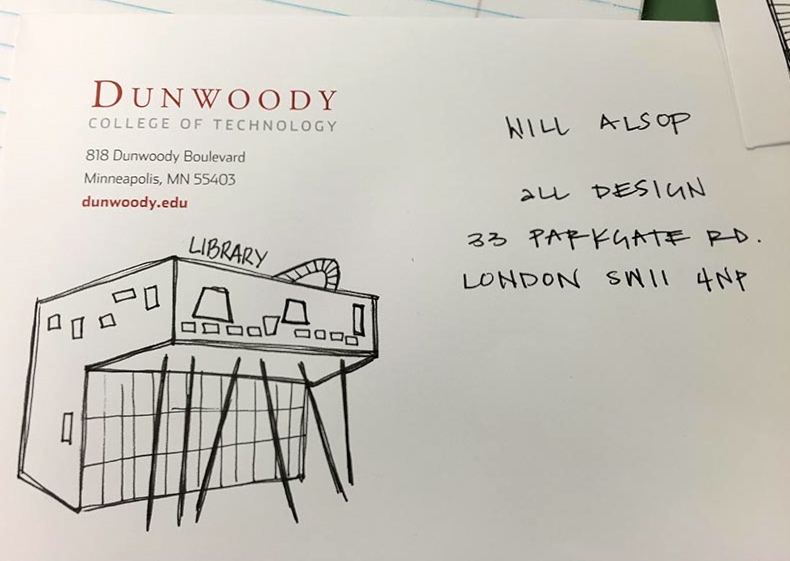 DUNWOODY
COLLEGE OF TECHNOLOGY
818 Dunwoody Boulevard
Minneapolis, MN 55403
dunwoody.edu
WILL ALSOP
aLL DESIGN
33 PARKGATE RD.
LONDON SW11 4NP
LIBRARY